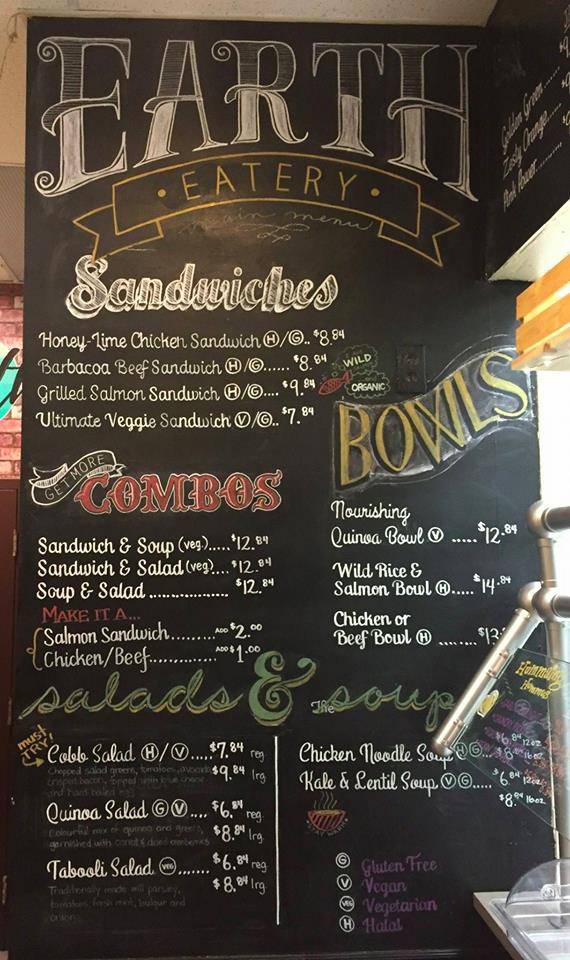 EARTH
EATERY
main menu
Sandwiches
Honey-Lime Chicken Sandwich H/G.. $8.84
Barbacoa Beef Sandwich H/G...... $8.84
Grilled Salmon Sandwich H/G.... $9.84
WILD
ORGANIC
Ultimate Veggie Sandwich V/G.. $7.84
BOWLS
Nourishing
Quinoa Bowl V ..... $12.84
Wild Rice &
Salmon Bowl H..... $14.84
Chicken or
Beef Bowl H ....... $13
GET MORE
COMBOS
Sandwich & Soup (veg.)..... $12.84
Sandwich & Salad (veg.)... $12.84
Soup & Salad ............... $12.84
MAKE IT A...
Salmon Sandwich......... ADD $2.00
Chicken/Beef............. ADD $1.00
salads & The soup
MUST TRY!
Cobb Salad H/V..... $7.84 reg
$9.84 lrg
Chopped salad greens, tomatoes, avocado,
crispy bacon, topped with blue cheese
and hard boiled egg
Quinoa Salad G V .... $6.84 reg.
$8.84 lrg.
Colourful mix of quinoa and greens,
garnished with carrot & dried cranberries
Tabooli Salad VEG....... $6.84 reg
$8.84 lrg.
Traditionally made will parsley,
tomatoes, fresh mint, bulgur and
onions
Chicken Noodle Soup H G
$6.84 12oz
$8.84 16oz
Kale & Lentil Soup V G..... $6.84 12oz
$8.84 16oz.
G Gluten Free
V Vegan
VEG Vegetarian
H Halal
Golden Green
Zesty Orange
Pink Power